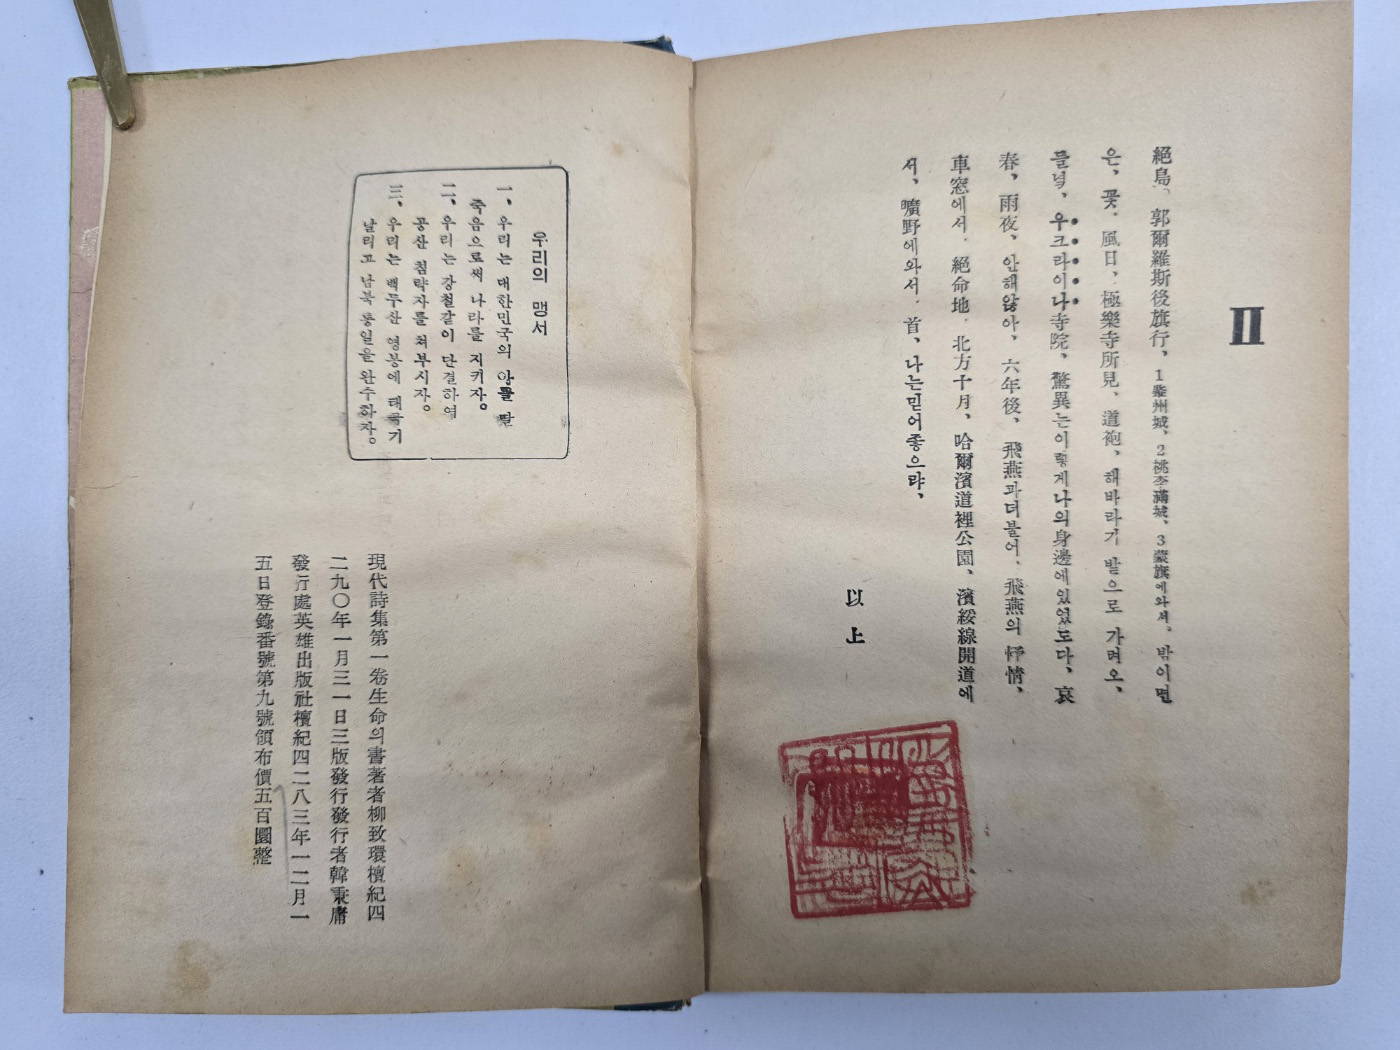 II
絕島、郭爾羅斯後旗行、1肇州城、2桃李滿城、3蒙旗에와서、밖이면
은、꽃、風日、極樂寺所見、道袍、해바라기 밭으로 가려오、
들녘、우크라이나寺院、驚異는이렇게나의身邊에있었도다、哀
春、雨夜、안해앓아、六年後、飛燕과더불어、飛燕의抒情、
車窓에서、絕命地、北方十月、哈爾濱道裡公園、濱綏線開道에
서、曠野에와서、首、나는믿어좋으랴、
以上
우리의 맹서
一、우리는 대한민국의 아들 딸
죽음으로써 나라를 지키자。
二、우리는 강철같이 단결하여
공산 침략자를 쳐부시자。
三、우리는 백두산 영봉에 태극기
날리고 남북 통일을 완수하자。
現代詩集第一卷生命의書著者柳致環檀紀四
二九〇年一月三一日三版發行發行者韓秉庸
發行處英雄出版社檀紀四二八三年一二月一
五日登錄番號第九號領布價五百圜整